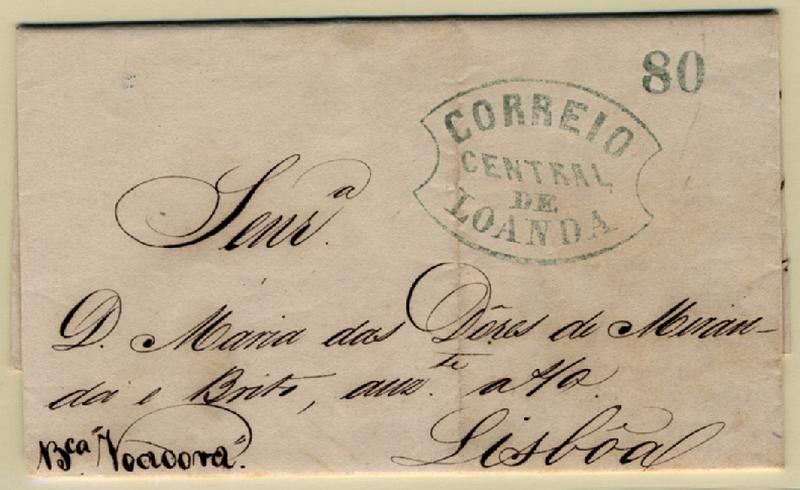 80
CORREIO
CENTRAL
DE
LOANDA
Senr.ª
D. Maria das Dôres de Miran-
da e Brito, auz.te a/o.
Lisbôa
Bca. "Voadora".